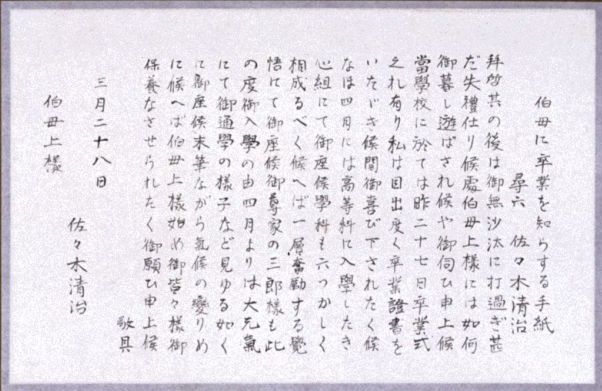 伯母に卒業を知らする手紙
尋六 佐々木清治
拜啓其の後は御無沙汰に打過ぎ甚
だ失禮仕り候處伯母上樣には如何
御暮し遊ばされ候や御伺ひ申上候
當學校に於ては昨二十七日卒業式
之れ有り私は目出度く卒業證書を
いたゞき候間御喜び下されたく候
なほ四月には高等科に入學したき
心組にて御座候學科も六つかしく
相成るべく候へば一層奮勤する覺
悟にて御座候御尊家の三郎樣も此
の度御入學の由四月よりは大元氣
にて御通學の樣子など見ゆる如く
に御座候末筆ながら氣候の變りめ
に候へば伯母上樣始め御皆々樣御
保養なさせられたく御願ひ申上候
敬具
三月二十八日
佐々木清治
伯母上樣